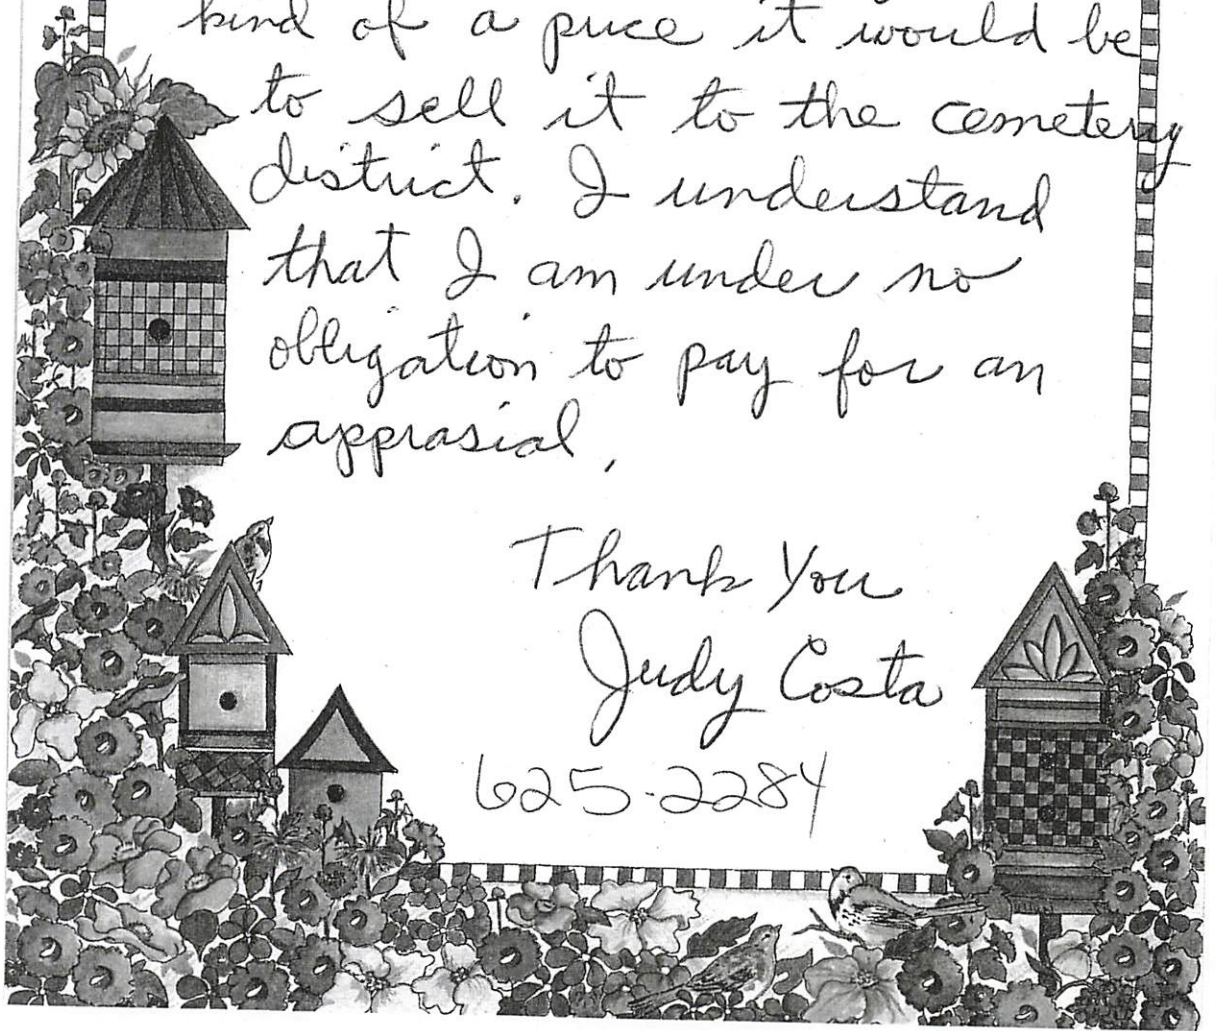 kind of a price it would be
to sell it to the cemetery
district. I understand
that I am under no
obligation to pay for an
apprasial.
Thank You
Judy Costa
625-2284